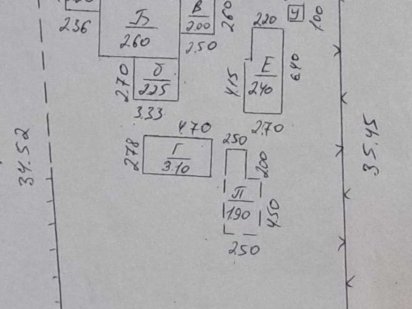 236
Б
260
В
200
250
260
220
Ч
100
2.70
б
225
3.33
415
Е
240
640
2.70
470
278
Г
310
250
200
П
190
450
250
34.52
35.45